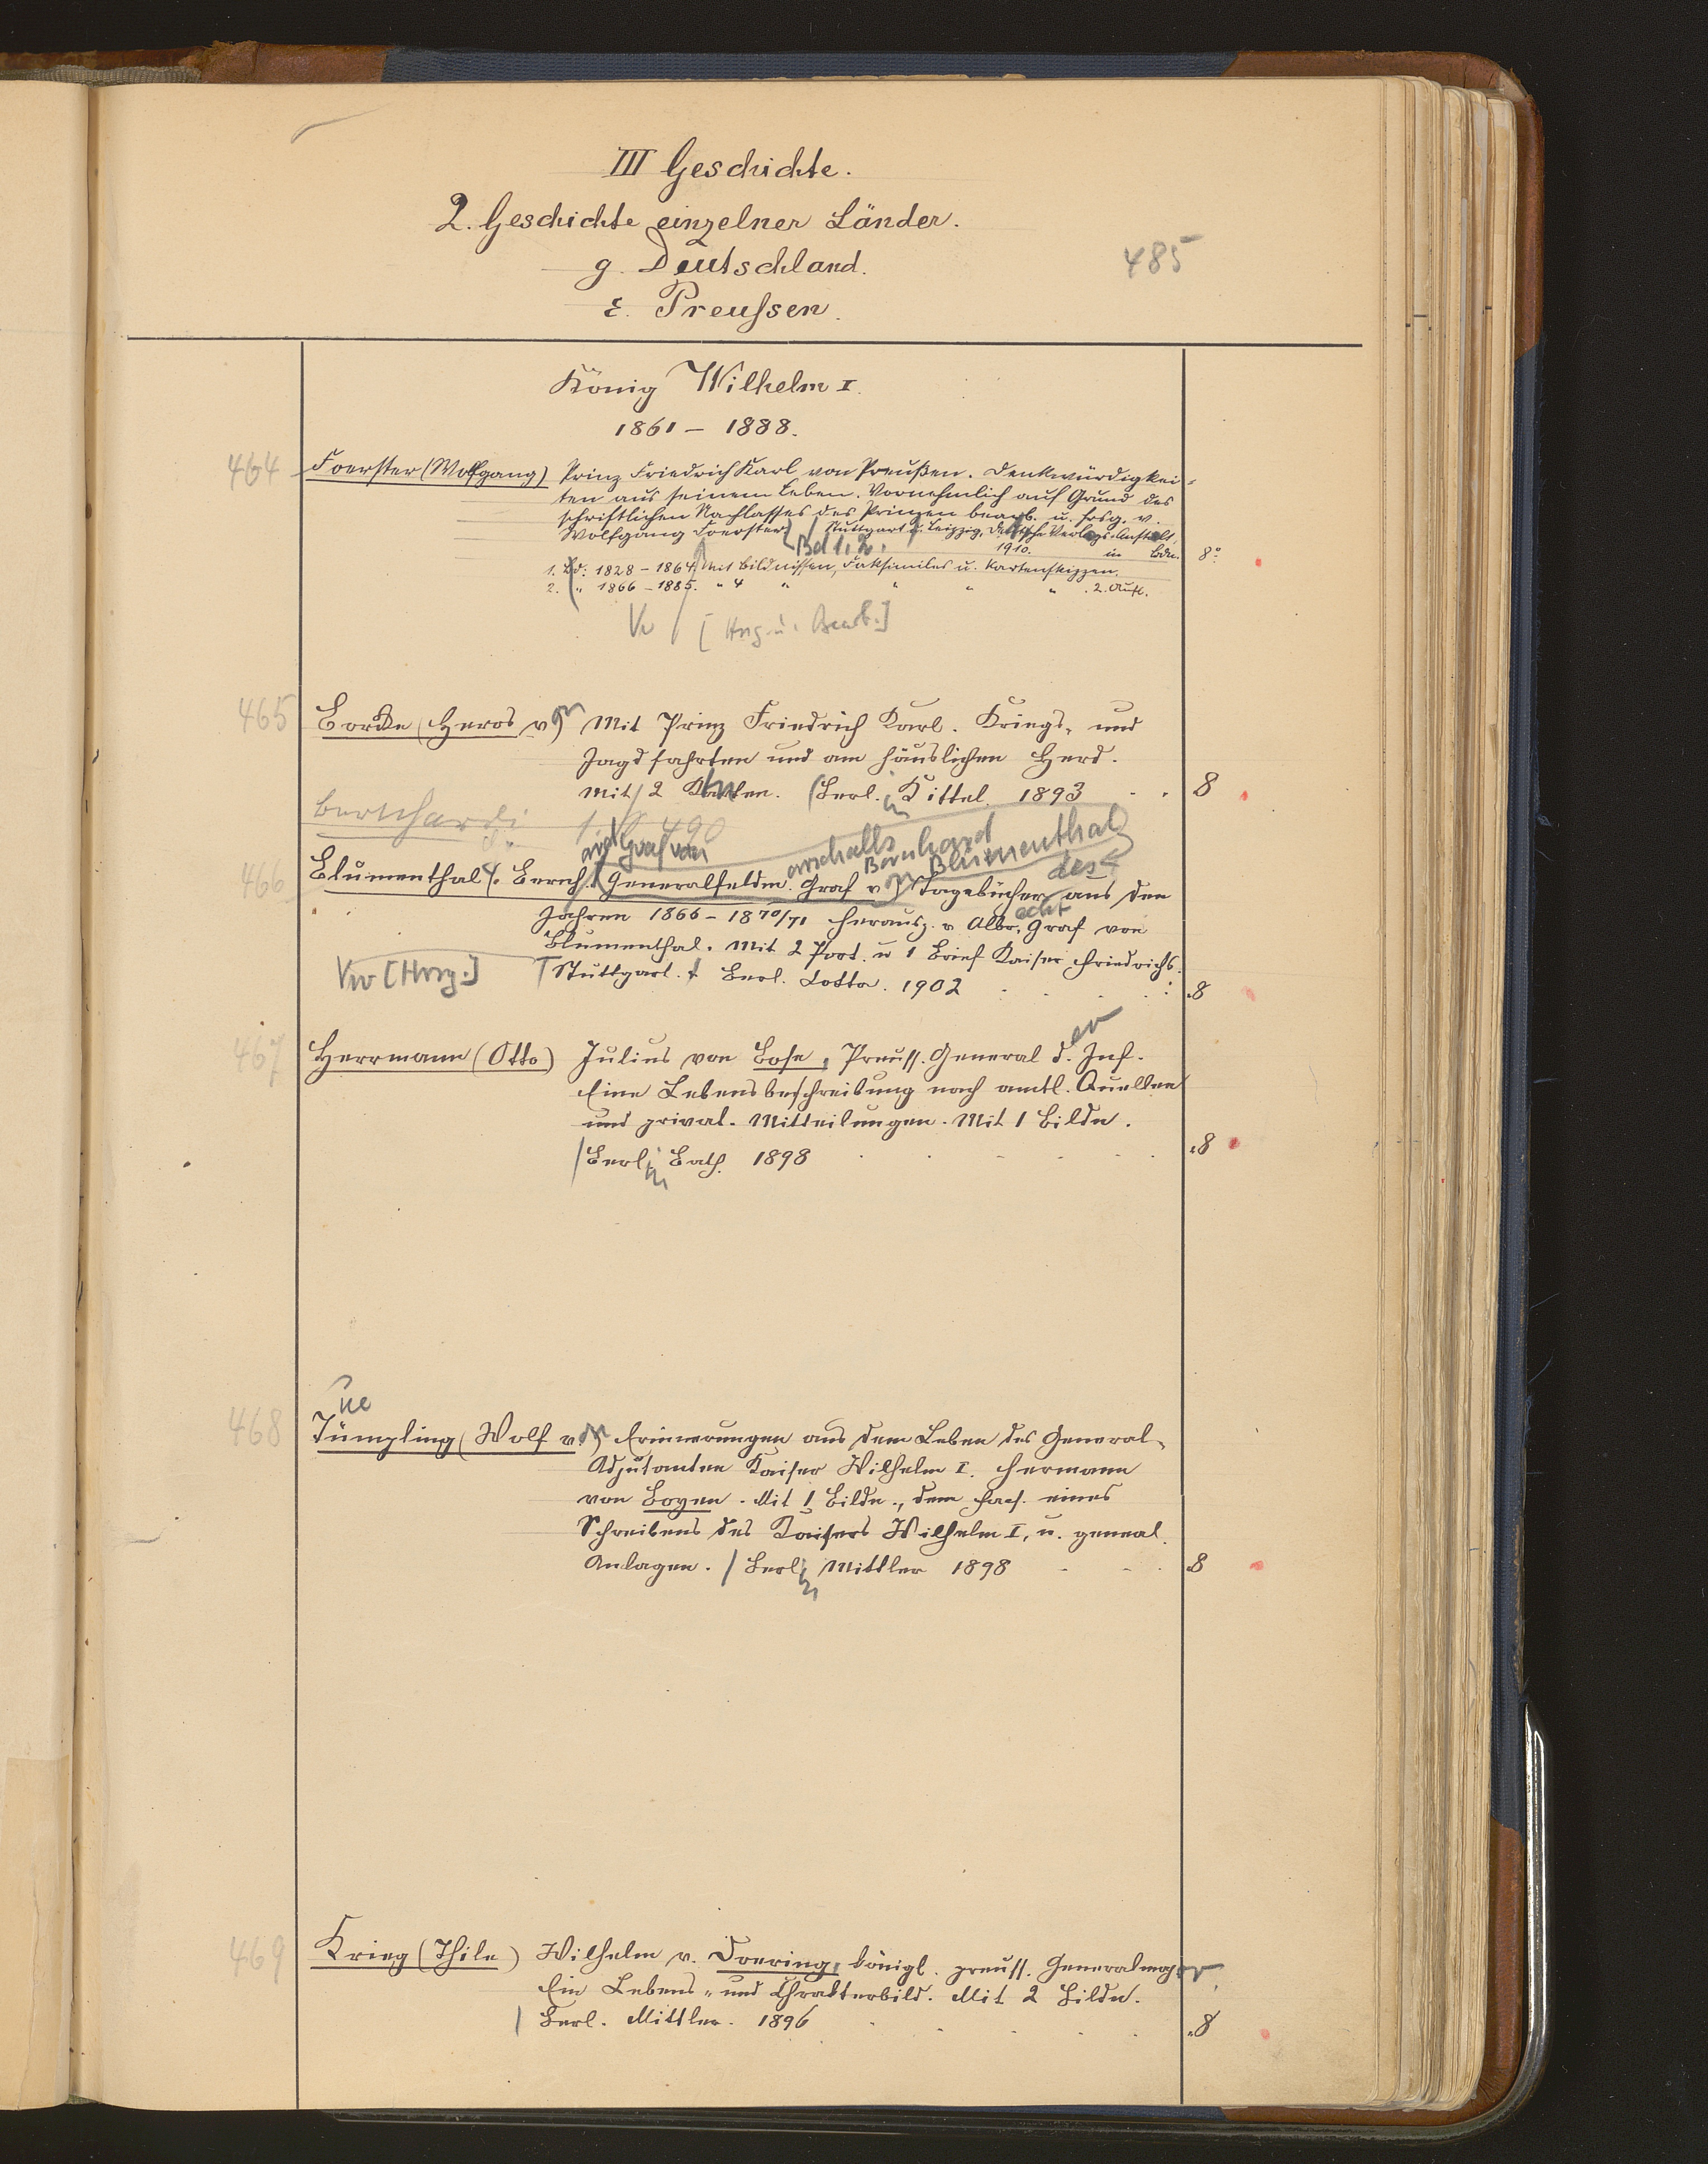 III Geschichte.
2. Geschichte einzelner Länder.
g. Deutschland.
485
ε. Preussen.
König Wilhelm I.
1861 – 1888.
464 Foerster (Wolfgang) Prinz Friedrich Karl von Preußen. Denkwürdigkei-
ten aus seinem Leben. Vornehmlich auf Grund des
schriftlichen Nachlasses des Prinzen bearb. u. hrsg. v.
Wolfgang Foerster. Stuttgart u. Leipzig, Deutsche Verlags-Anstalt,
Bd 1. 2. 1910. in Bdn. 8°
1. Bd: 1828 – 1864. Mit Bildnissen, Faksimiles u. Kartenskizzen.
2. " 1866 – 1885. " 4 " " " " . 2. Aufl.
Vw [Hrsg. u. Bearb.]
465 Borcke (Heros von) Mit Prinz Friedrich Karl. Kriegs- und
Jagdfahrten und am häuslichen Herd.
Mit 2 Karten. Berl. Kittel. 1893 8
Bernhardi
490
Graf von
arschalls Bernhard Blumenthal
des
466 Blumenthal, Generalfeldm. Graf v. Tagebücher aus den
Jahren 1866 – 1870/71 herausg. v. Albrecht Graf von
Blumenthal. Mit 2 Port. u 1 Brief Kaiser Friedrichs.
Vw [Hrsg.] Stuttgart. Berl. Cotta. 1902 8
467 Herrmann (Otto) Julius von Bose, Preuss. General d. Inf.
Eine Lebensbeschreibung nach amtl. Quellen
und privat. Mitteilungen. Mit 1 Bildn.
Berlin Bath. 1898 8
468 Tümpling (Wolf von) Erinnerungen aus dem Leben des General-
Adjutanten Kaiser Wilhelm I. Hermann
von Boyen. Mit 1 Bildn., dem Facs. eines
Schreibens des Kaisers Wilhelm I, u. geneal.
Anlagen. Berlin Mittler 1898 8
469 Krieg (Thilo) Wilhelm v. Doering, königl. preuss. Generalmajor.
Ein Lebens- und Chrakterbild. Mit 2 Bildn.
Berl. Mittler. 1896 8